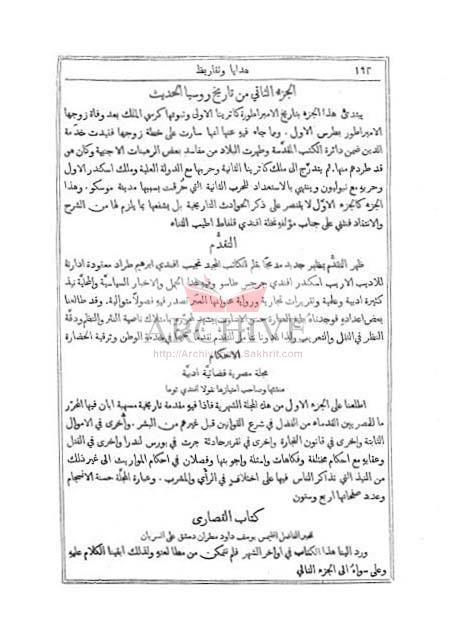 ١٦٢ هدايا وتقاريظ
الجزء الثاني من تاريخ روسيا الحديث
يبتدئ هذا الجزء بتاريخ الامبراطورة كاترينا الاولى وتبوئها كرسي الملك بعد وفاة زوجها
الامبراطور بطرس الاول. ومما جاء فيه عنها انها سارت على خطة زوجها في خدمة
الدين ضمن دائرة الكتب المقدسة وطهرت البلاد من مفاسد بعض الرهبنات الاجنبية وكان هو
قد طردهم منها. ثم يتدرج الى ملك كاترينا الثانية وحربها مع الدولة العلية وملك اسكندر الاول
وحربه مع نبوليون وينتهي بالاستعداد للحرب الثانية التي حُرقت بسببها مدينة موسكو. وهذا
الجزء كالجزء الاول لا يقتصر على ذكر الحوادث التاريخية بل يشفعها بما يلزم لها من الشرح
والانتقاد فنثني على جناب مؤلفه نخلة افندي قلفاط اطيب الثناء
التقدُّم
ظهر التقدم بمظهر جديد مدبجًا بقلم الكاتب المجيد نجيب افندي ابرهيم طراد معهودة ادارته
للاديب الاريب اسكندر افندي جرجس طاسو وفيه الاخبار السياسية والمحلية نبذ
كثيرة ادبية وعلمية وتقريرات تجارية ورواية عنوانها تصدر فيه فصولًا متوالية. وقد طالعنا
بعض اعداده فوجدناه العبارة امتلاك ناصية النثر والنظم ودقة
النظر في النقل والتعريب ولذا للتقدم خدمة الوطن وترقية الحضارة
ARCHIVE
http://Archivebeta.Sakhrit.com
الاحكام
مجلة مصرية قضائية ادبية
منشئها وصاحب امتيازها نقولا افندي توما
اطلعنا على الجزء الاول من هذه المجلة الشهرية فاذا فيه مقدمة تاريخية مسهبة ابان فيها المحرّر
ما للمصريين القدماء من الفضل في شرع القوانين قبل غيرهم من البشر. واخرى في الاموال
الثابتة واخرى في قانون التجارة واخرى في تقرير حادثة جرت في بورس لندرا واخرى في القتل
وعقابه مع احكام مختلفة وفكاهات وامثلة واجوبتها وفصلان في احكام المواريث الى غير ذلك
من النبذ التي تذكار الناس فيها على اختلافهم في الرأي والمشرب. وعبارة المجلة حسنة الانسجام
وعدد صفحاتها اربع وستون
كتاب القصارى
لحبر الفاضل اقليميس يوسف داود مطران دمشق على السريان
ورد الينا هذا الكتاب في اواخر الشهر فلم نتمكن من مطالعته ولذلك ابقينا الكلام عليه
وعلى سواه الى الجزء التالي